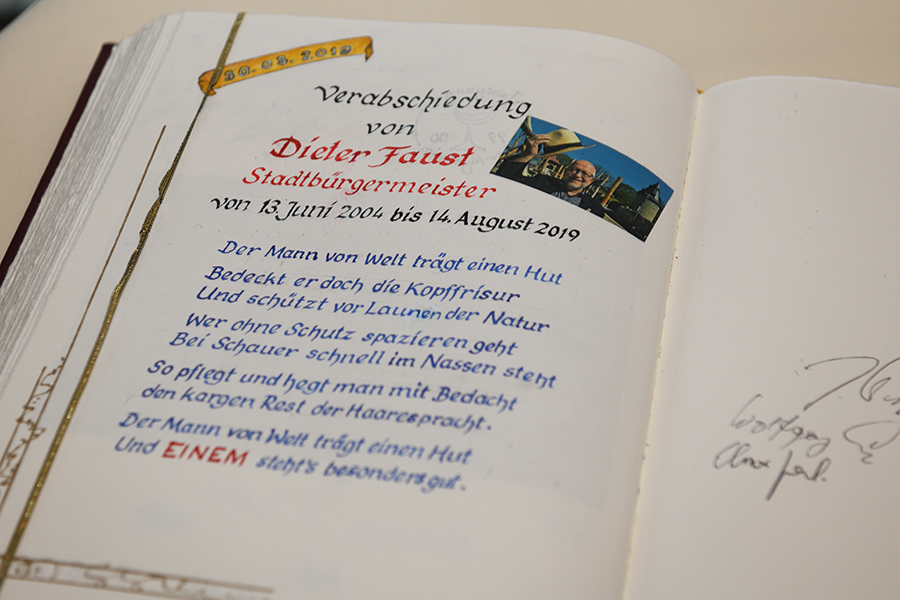 30.08.2019
Verabschiedung
von
Dieter Faust
Stadtbürgermeister
von 13. Juni 2004 bis 14. August 2019
Der Mann von Welt trägt einen Hut
Bedeckt er doch die Kopffrisur
Und schützt vor Launen der Natur
Wer ohne Schutz spazieren geht
Bei Schauer schnell im Nassen steht
So pflegt und hegt man mit Bedacht
den kargen Rest der Haarespracht.
Der Mann von Welt trägt einen Hut
Und EINEM steht's besonders gut.
Wolfgang